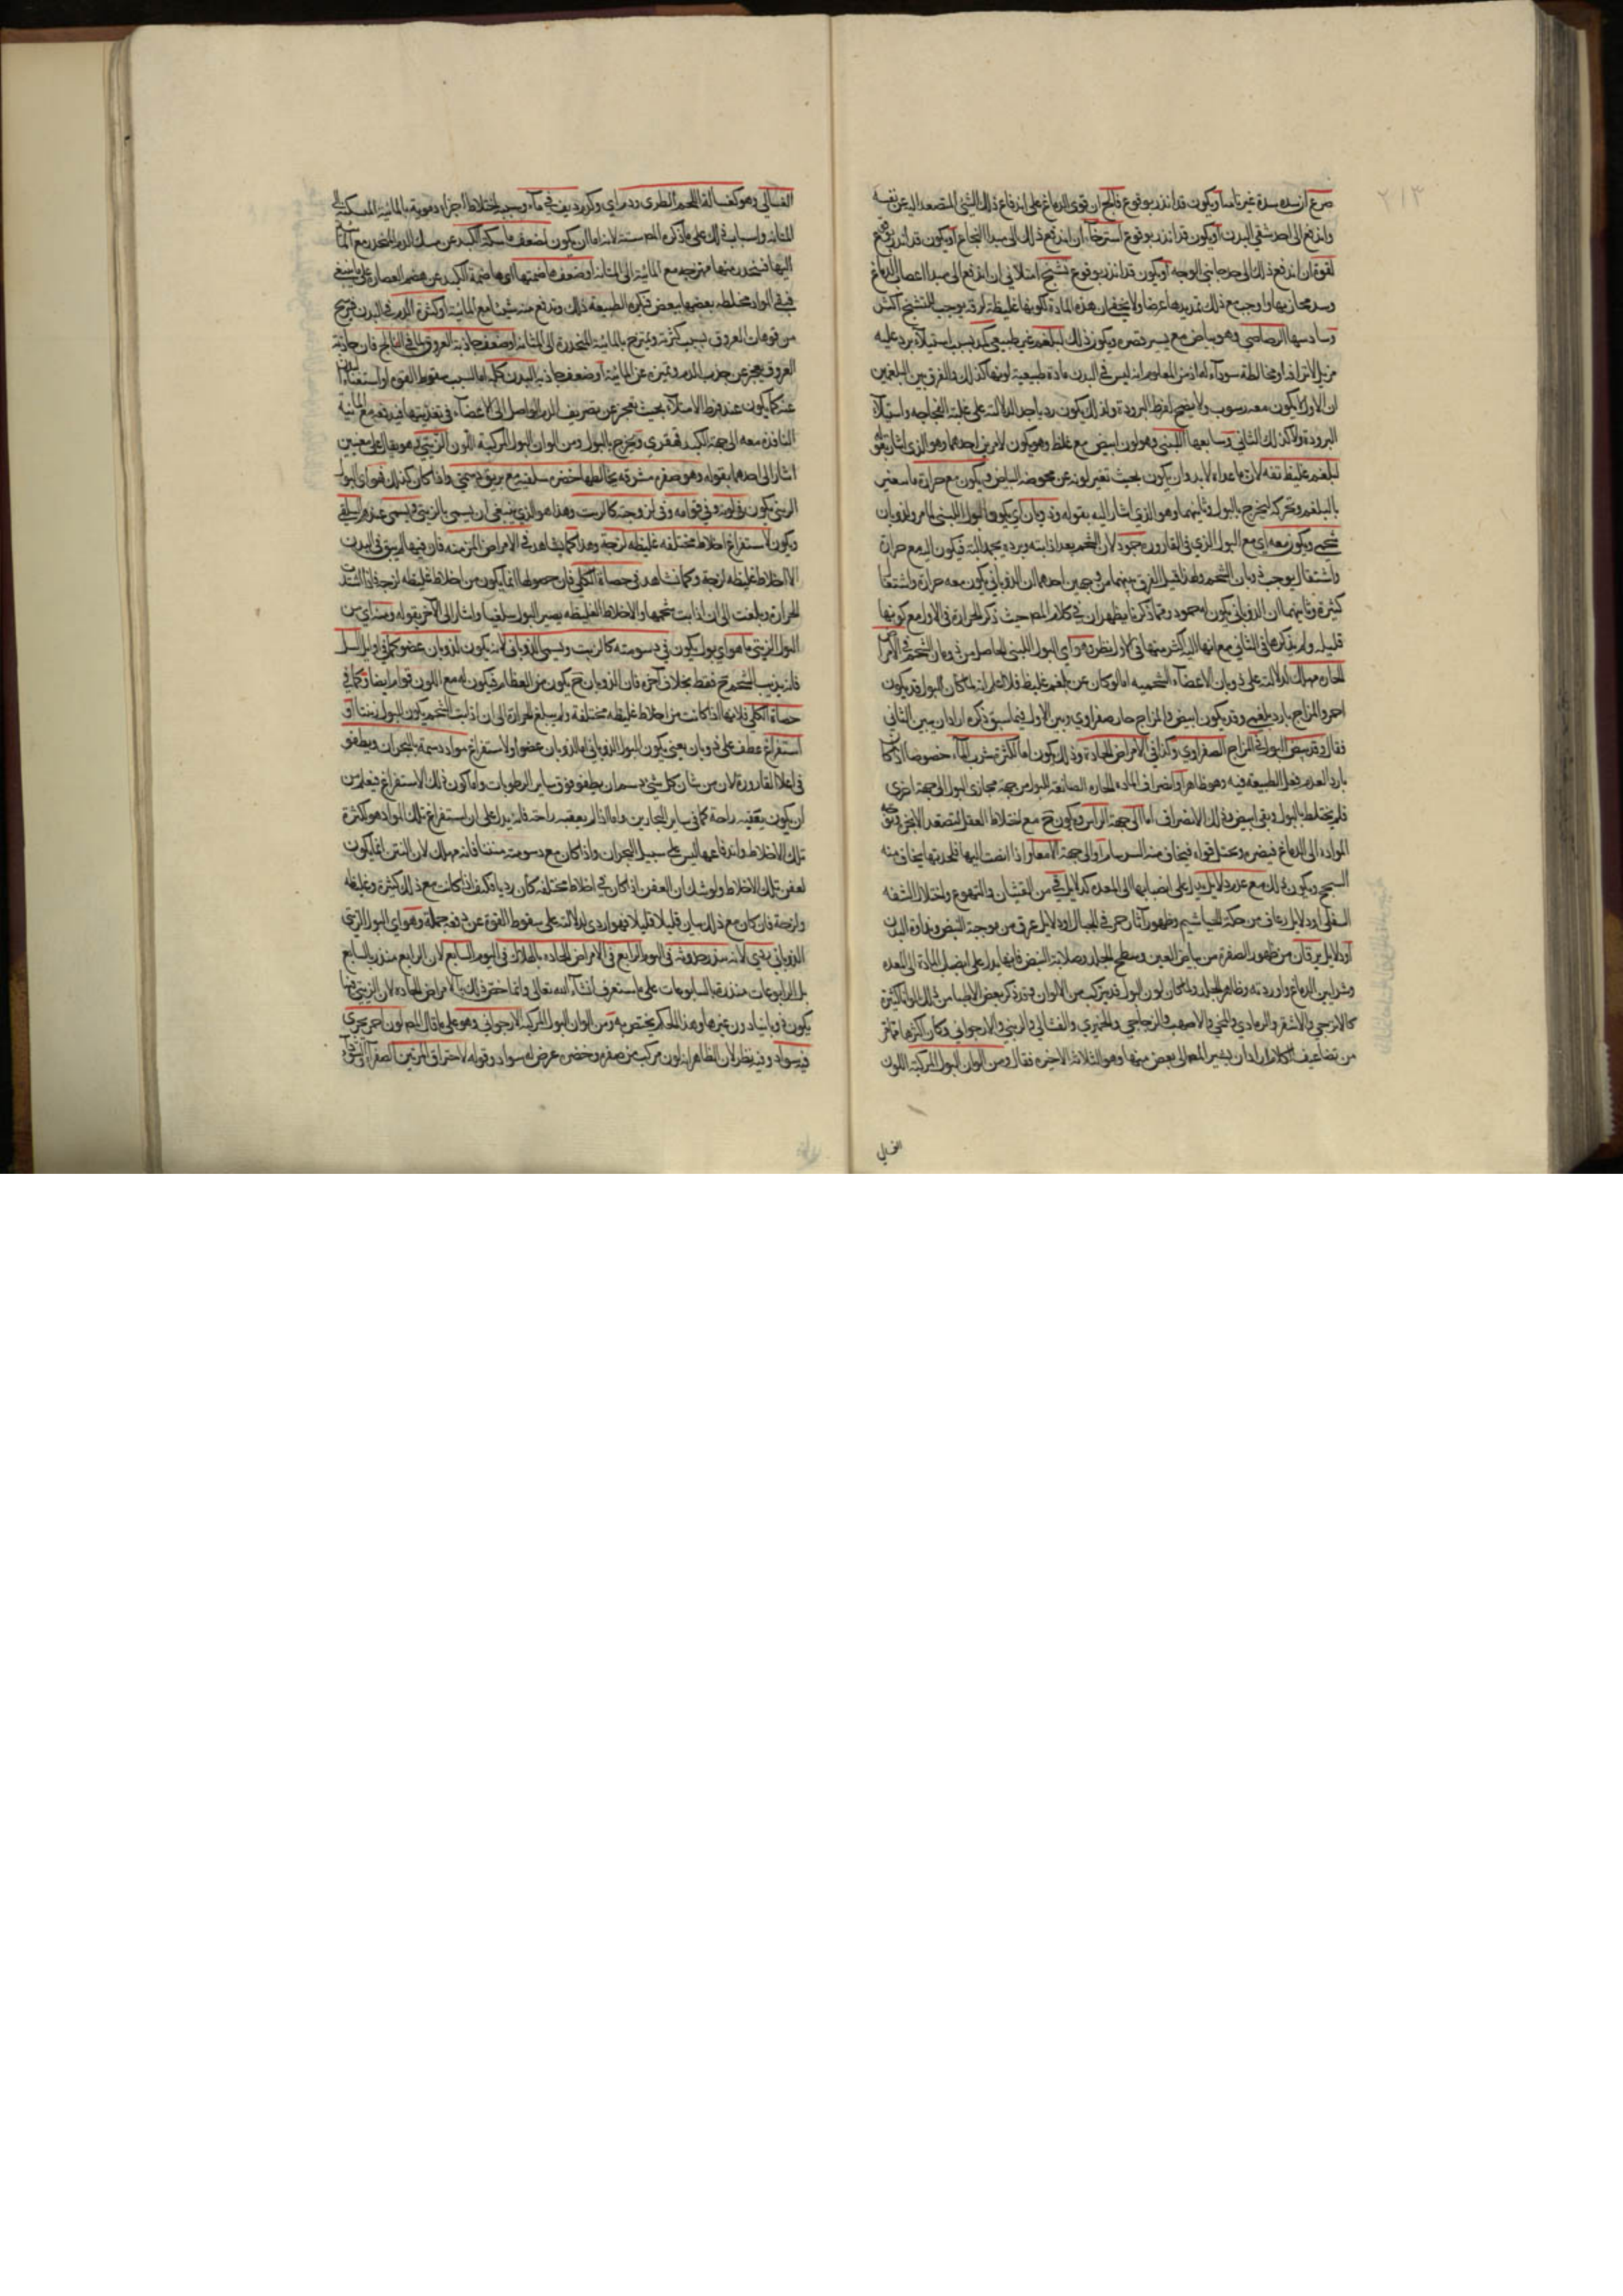 ٢١٣
صرع ان سده سدة غير تامة او يكون قد انذر بوقوع فالج ان قوى الدماغ على اندفاع ذلك الشئ المتصعد اليه عن نفسه
واندفع الى احد شقي البدن او يكون قد انذر بوقوع استرخاء ان اندفع ذلك الى مبدا النخاع او يكون قد انذر بوقوع
لقوة ان اندفع ذلك الى احد جانبي الوجه او يكون قد انذر بوقوع تشنج امتلائي ان اندفع الى مبدا اعصاب الدماغ
وسد مجاريها واوجب مع ذلك تمديدها عرضا ولا يخفى ان هذه المادة لكونها غليظة لزجة يوجب التشنج اكثر
وسادسها الرصاصي وهو بياض مع يسير خضره ويكون ذلك لبلغم غير طبيعي كمد بسبب استيلاء برد عليه
مزيل لاشراقه او مخالطة سوداء له اذ من المعلوم انه ليس في البدن مادة طبيعية لونها كذلك والفرق بين البلغمين
ان الاول لا يكون معه رسوب ولا نضج لفرط البرودة ولذلك يكون رديا جدا لدلالته على غلبة الفجاجه واستيلاء
البرودة ولا كذلك الثاني وسابعها اللبني وهو لون ابيض مع غلظ وهو يكون لامرين احدهما وهو الذي اشار بقوله
لبلغم غليظ تفه لان ما عداه لا بد وان يكون بحيث تغير لونه عن محوضة البياض ويكون مع حرارة ما سعين
بالبلغم وتحركه ليخرج بالبول وثانيهما وهو الذي اشار اليه بقوله وذوبان اي يكون البول اللبني لامر ولذوبان
شحم ويكون معه اي مع البول الذي في القارورة جمود لان الشحم بعد اذابته وبرده يجمد البتة فيكون اليه مع حرارة
واشتعال يوجب ذوبان الشحم ولهذا قيل الفرق بينهما من وجهين احدهما ان الذوباني يكون معه حرارة واشتعال
كثيرة وثانيهما ان الذوباني يكون له جمود ومما ذكرنا يظهر ان في كلام المص حيث ذكر الحرارة في الاول مع كونها
قليله ولم يذكرها في الثاني مع انها اليه اكثر منها في الاول نظر وهو اي البول اللبني الحاصل من ذوبان الشحم في الامراض
الحاره مهلك لدلالته على ذوبان الاعضاء الشحميه اما لو كان عن بلغم غليظ فلا ثم انه لما كان البول قد يكون
احمر والمزاج بارد بلغمي وقد يكون ابيض والمزاج حار صفراوي وبين الاول فيما سبق ذكره اراد ان يبين الثاني
فقال وقد يبيض البول في المزاج الصفراوي وكذا في الامراض الحادة وذلك يكون اما لكثرة شرب الماء خصوصا اذا كان
باردا لعدم فعل الطبيعة فيه وهو ظاهر او لانصراف المادة الحاره الصابغة للبول من جهة مجاري البول الى جهة اخرى
فلم يختلط بالبول وبقى ابيض وذلك الانصراف اما الى جهة الراس ويكون ح مع اختلاط العقل لتصعد الابخرة
المواده الى الدماغ فيضره ويختل قواه فيخاف منه السرسام او الى جهة الامعاء واذا انصب اليها فلحدتها يخاف منه
السحج ويكون ذلك مع عدد دلايل يدل على انصبابها الى المعده كدلايل قي من الغثيان والتهوع واختلاج الشفه
السفلى او دلايل رعاف من حكة الخياشيم وظهور آثار حمر في الخيال او دلايل عرق من موجية النبض ونداوة البدن
او دلايل يرقان من ظهور الصفرة من بياض العين وسطح الجلد وصلابة النبض فانها يدل على انصباب المادة الى المعده
وشرايين الدماغ واوردته وظاهر الجلد ولما كان لون البول قد يتركب من الالوان وقد ذكر بعض الاطبا من ذلك الوانا كثيرة
كالاترجي والاشقر والرمادي والمني والاصهب والزجاجي والخمري والغسالي والزيتي والارجواني وكان اكثرها مما مر
من تضاعيف الكلام اراد ان يشير المص الى بعض منها وهو الثلاثة الاخيره فقال ومن الوان البول المركبة اللون
الغسالي
الغسالي وهو كغسالة اللحم الطري ودم اي وكدم ديف في ماء وسببه اختلاط اجزاء دموية بالمائية المنسكبة الى
المثانة واسباب ذلك على ما ذكره المص ستة لانه اما ان يكون لضعف ماسكة الكبد عن مسك الدم المنحدر مع الماء
اليها فينحدر منها ممتزجه مع المائية الى المثانة او ضعف هاضمتها اي هاضمة الكبد عن هضم العصارة على ما ينبغي
فيبقى المواد مختلطه بعضها ببعض فيكره الطبيعة ذلك ويدفع منه شيئا مع المائية او لكثرة الدم في البدن فيرشح
من فوهات العروق بسبب كثرته ويمتزج بالمائية المنحدرة الى المثانة او ضعف جاذبة العروق كما في الفالج فان جاذبة
العروق يعجز عن جذب الدم وتميزه عن المائية او ضعف جاذبة البدن كله اما لسبب سقوط القوه او استغناء البدن
عنه كما يكون عند فرط الامتلاء بحيث يعجز عن تصريف الدم الواصل الى الاعضاء في تغذيتها فيدفعه مع المائية
النافذة معه الى جهة الكبد قهقرى ويخرج بالبول ومن الوان البول المركبة اللون الزيتي وهو يقال على معنيين
اشار الى احدهما بقوله وهو صفره مشرقه يخالطها خضره سلقية مع بريق دسمي واذا كان كذلك فهو اي البول
الزيتي يكون في لونه وفي قوامه وفي لزوجته كالزيت وهذا هو الذي ينبغي ان يسمى بالزيتي ويسمى عندهم السلقي
ويكون لاستفراغ اخلاط مختلفه غليظه لزجة وهذا كما يشاهد في الامراض المزمنه فان فيها لم يبق في البدن
الا اخلاط غليظه لزجة وكما نشاهد في حصاة الكلى فان حصولها انما يكون من اخلاط غليظه لزجة فاذا اشتدت
الحرارة وبلغت الى ان اذابت شحمها والاخلاط الغليظه يصير البول سلقيا واشار الى الآخر بقوله ومنه اي من
البول الزيتي ما هو اي بول يكون في دسومته كالزيت ويسمى الذوباني لانه يكون لذوبان عضو كما في اوايل السل
فانه يذيب الشحم ح فقط بخلاف آخره فان الذوبان ح يكون من العظام فيكون له مع اللون قوام ايضا وكما في
حصاة الكلى فلانها اذا كانت من اخلاط غليظه مختلفة ولم يبلغ الحرارة الى ان اذابت الشحم يكون البول زيتيا او
استفراغ عطف على ذوبان يعني يكون البول الذوباني اما لذوبان عضو او لاستفراغ مواد دسمة بالبحران ويطفو
في اعلا القارورة لان من شان كل شئ دسم ان يطفو فوق ساير الرطوبات واما كون ذلك الاستفراغ فيعلم من
ان يكون يعقبه راحة كما في ساير البحارين واما اذا لم يعقبه راحة فانه يدل على ان استفراغ تلك المواد هو لكثرة
تلك الاخلاط واندفاعها ليس على سبيل البحران واذا كان مع دسومته منتنا فانه مهلك لان النتن انما يكون
لعفن تلك الاخلاط ولا شك ان العفن اذا كان في اخلاط مختلفه كان رديا فكيف اذا كانت مع ذلك كثيرة وغليظه
ولزجة فان كان مع ذلك يبان قليلا قليلا فهو اردى لدلالته على سقوط القوة عن دفعه جملة وهو اي البول الزيتي
الذوباني ردي لانه ينذر حدوثه في اليوم الرابع في الامراض الحاده بالهلاك في اليوم السابع لان الرابع منذر بالسابع
بل الرابوعات منذرة بالسابوعات على ما ستعرف انشاء الله تعالى وانما اختر ذلك بالامراض الحاده لان الزيتي فيها
يكون ذوبانيا دون غيرها وهذا الحكم يختص به ومن الوان البول المركبة الارجواني وهو على ما قال المص لون احمر يجري
فيه سواد وفيه نظر لان الظاهر انه لون مركب من صفره وخضره عرض له سواد وقوله لاحتراق المرتين الصفراء والسوداء